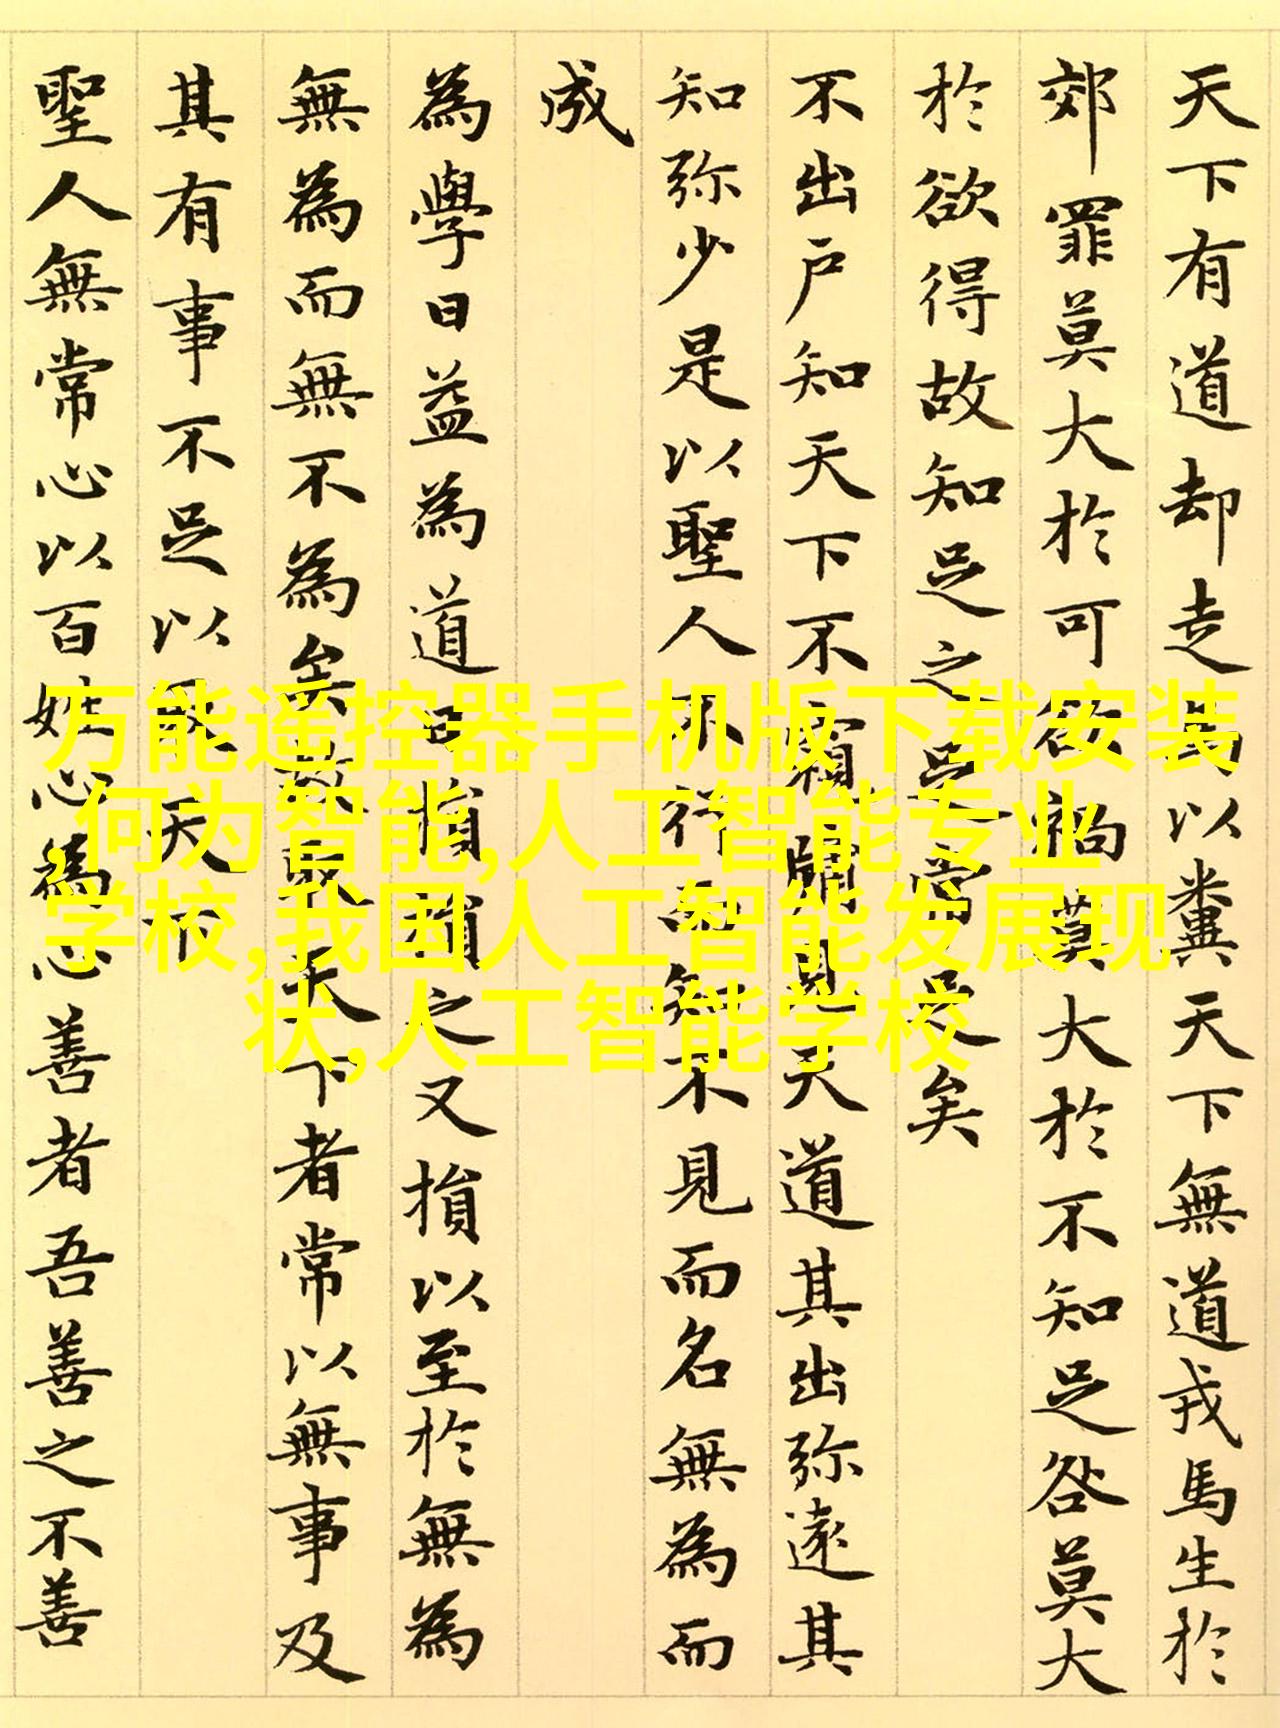 天下有道却走馬以糞天下無道戎馬生於
郊罪莫大於可欲禍莫大於不知足咎莫大
於欲得故知足之足常足矣
不出户知天下不窺牖見天道其出弥遠其
知弥少是以聖人不行而知不見而名無為而
成
為學日益為道日損損之又損以至於無為
無為而無不為矣故取天下者常以無事及
其有事不足以取天下
聖人無常心以百姓心為心善者吾善之不善
万能遥控器手机版下载安装
,何为智能,人工智能专业
学校,我国人工智能发展现
状,人工智能学校